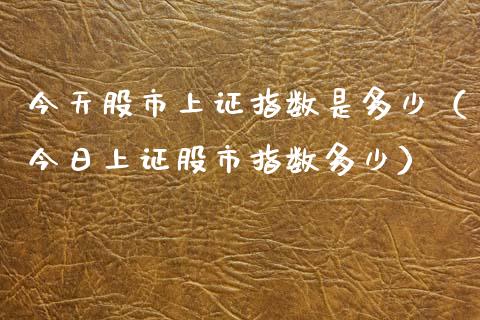 今天股市上证指数是多少（
今日上证股市指数多少）